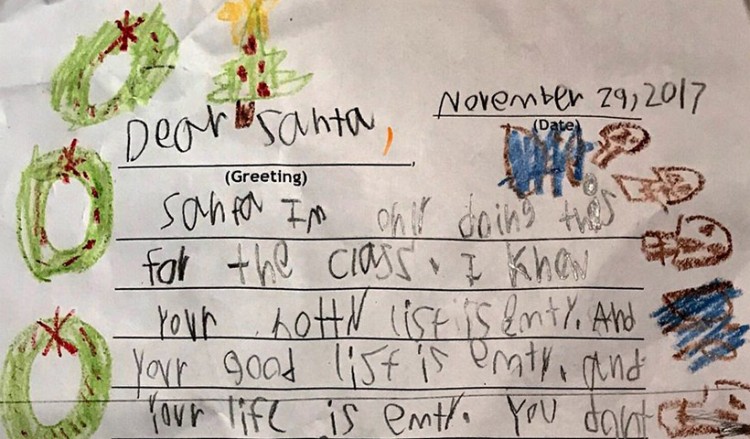 November 29, 2017
(Date)
Dear Santa,
(Greeting)
Santa Im only doing this
for the class. I know
Your nottN list is Emty. And
Your good list is emty. and
Your life is emty. You dont